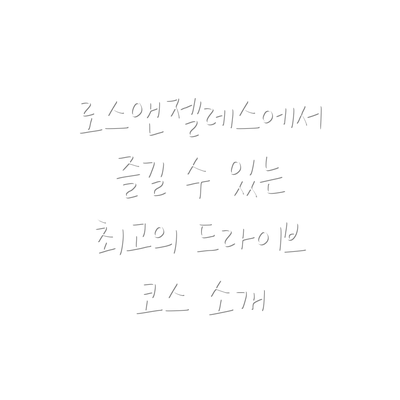 로스앤젤레스에서
즐길 수 있는
최고의 드라이브
코스 소개